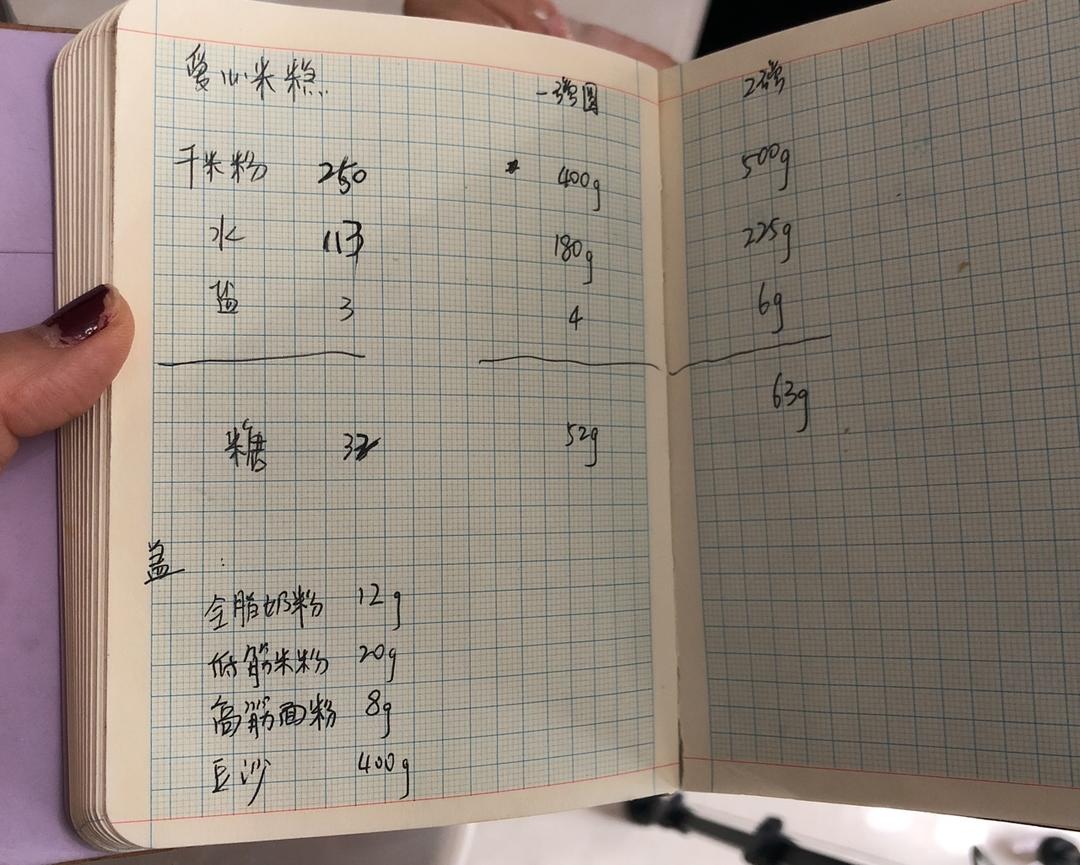 爱心米糕 一磅圆 2磅
干米粉 250 400g 500g
水 113 180g 225g
盐 3 4 6g
糖 32 52g 63g
盖:
全脂奶粉 12g
低筋米粉 20g
高筋面粉 8g
豆沙 400g